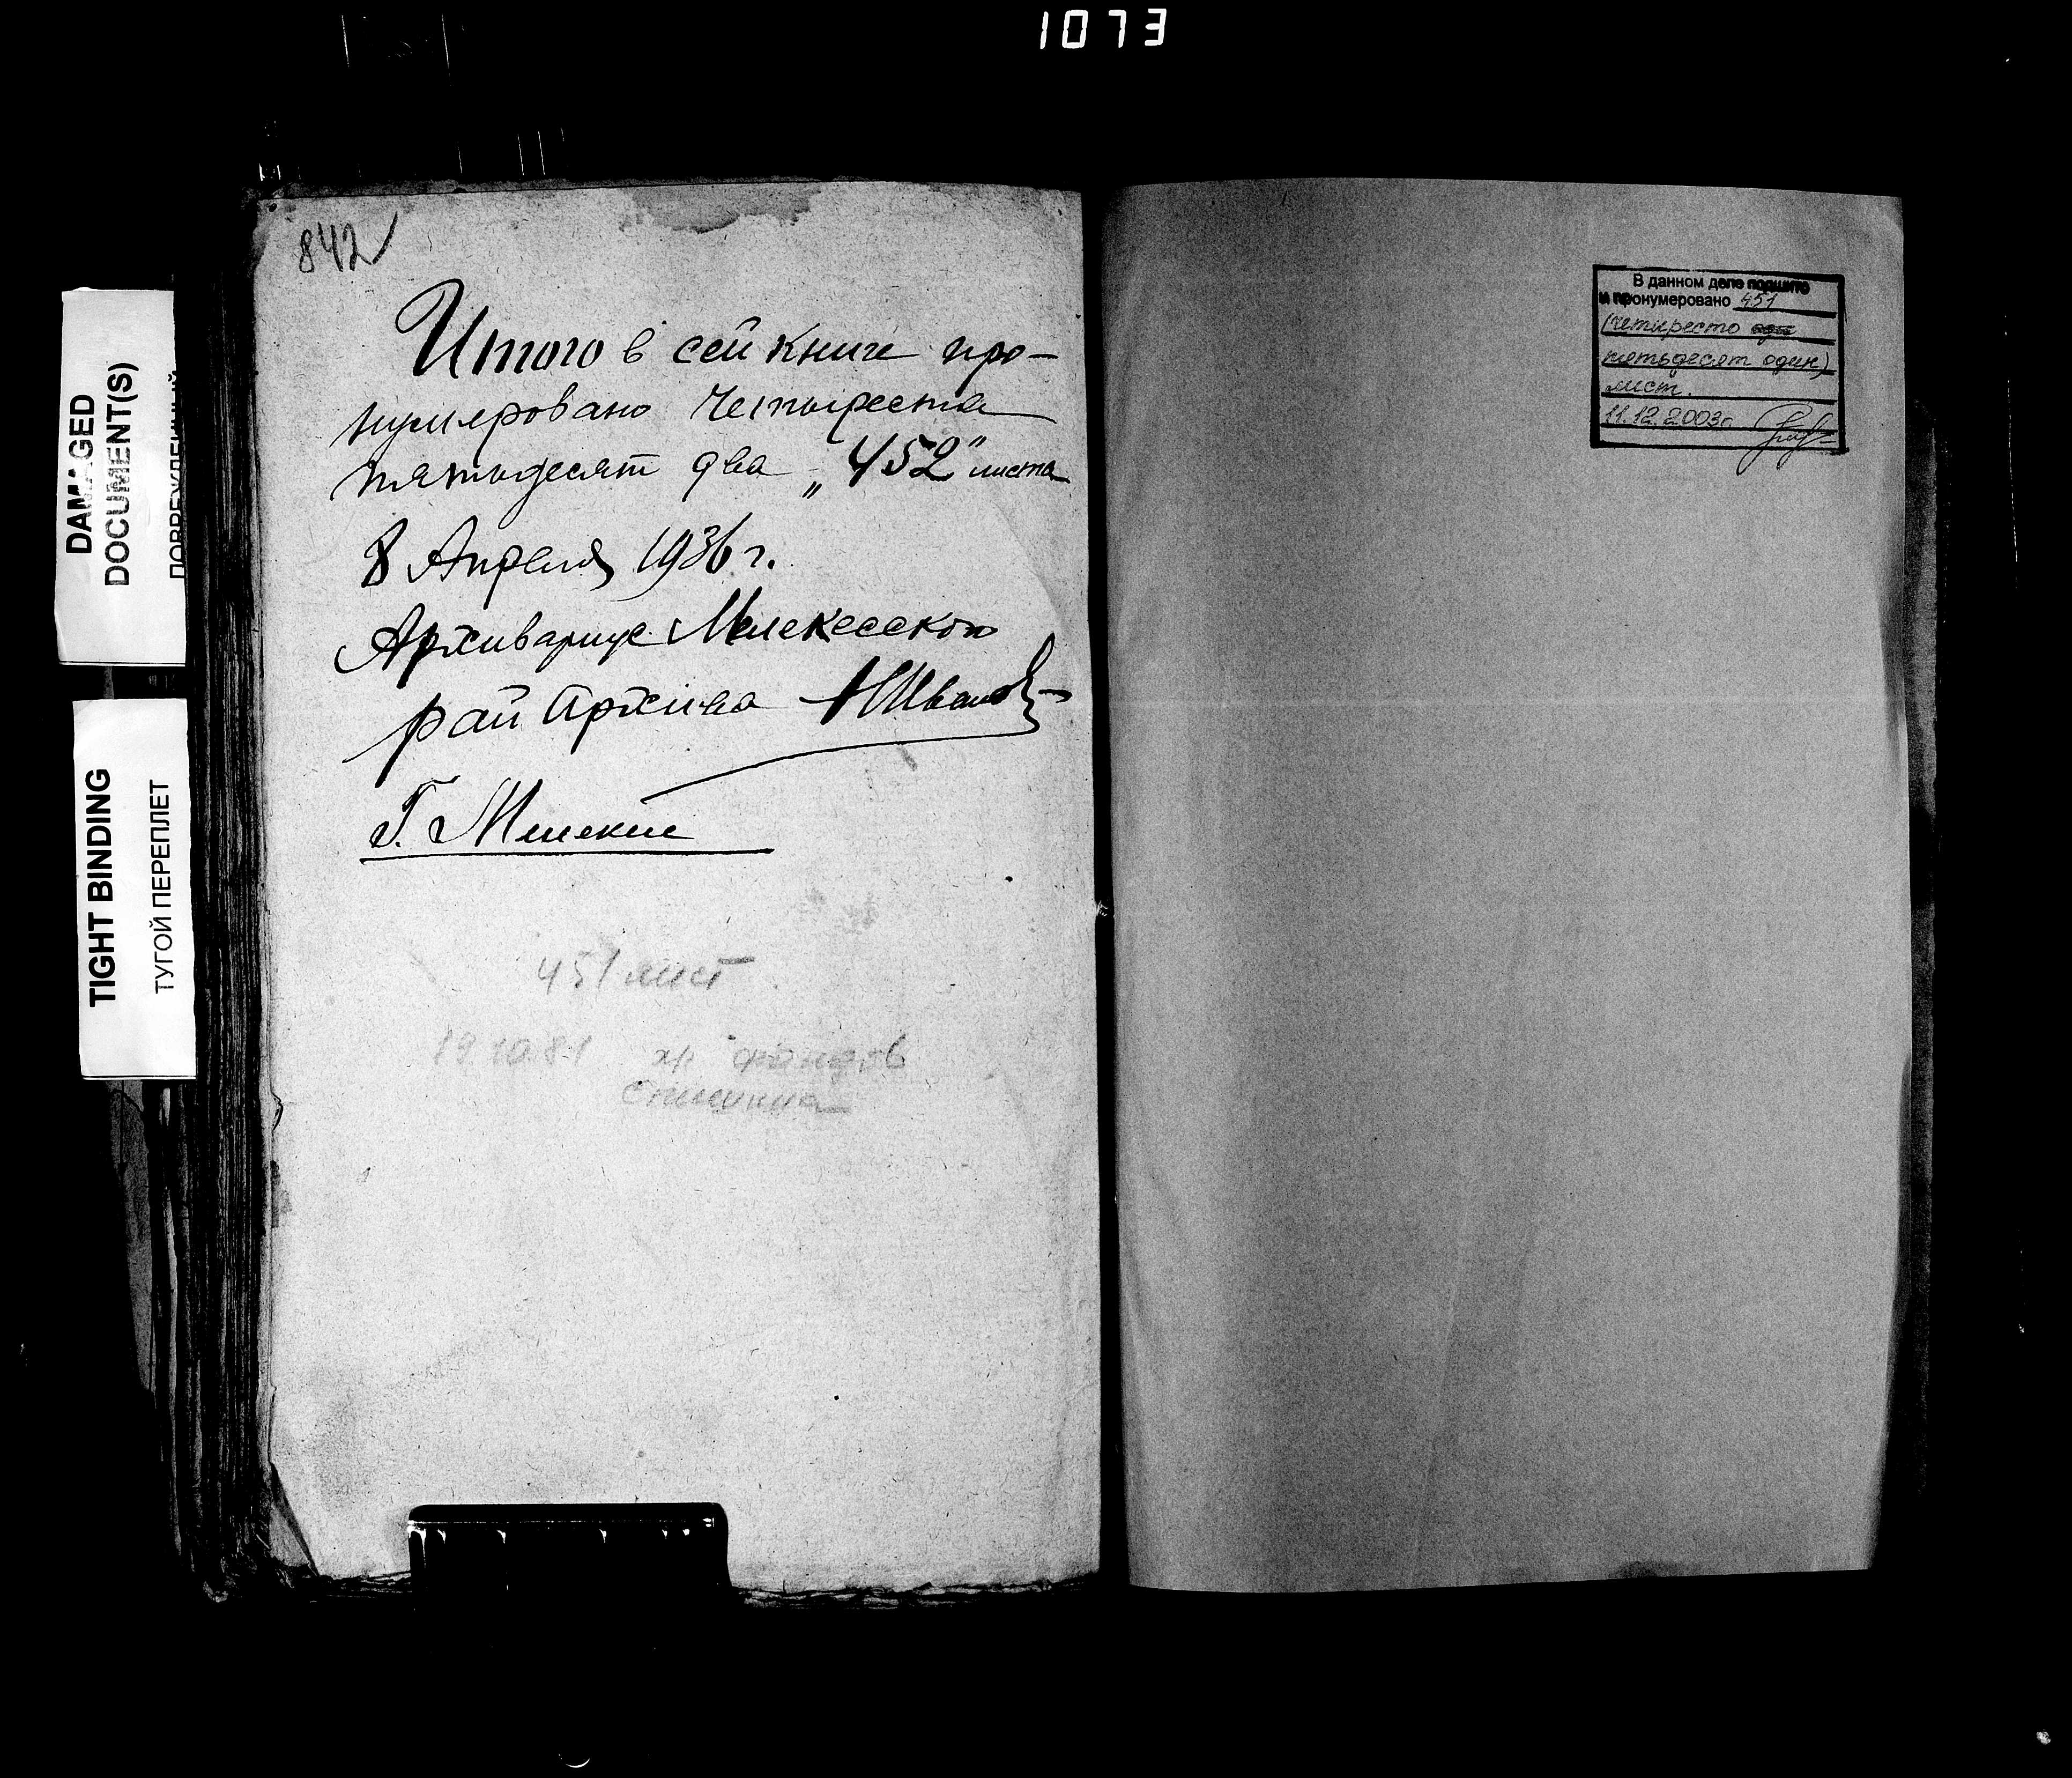 1073
DAMAGED
DOCUMENT(S)
ПОВРЕЖДЕННЫЙ
TIGHT BINDING
ТУГОЙ ПЕРЕПЛЕТ
842
Итого в сей книге про-
нумеровано Четыреста
пятьдесят два „452" листа
8 Апреля 1936 г.
Архивариус Мелекесского
рай архива НИванов
Г. Мелекес
451 лист
19.10.81 хр фондов
В данном деле подшито
и пронумеровано 451
(четыресто
пятьдесят один)
лист.
11.12.2003г.